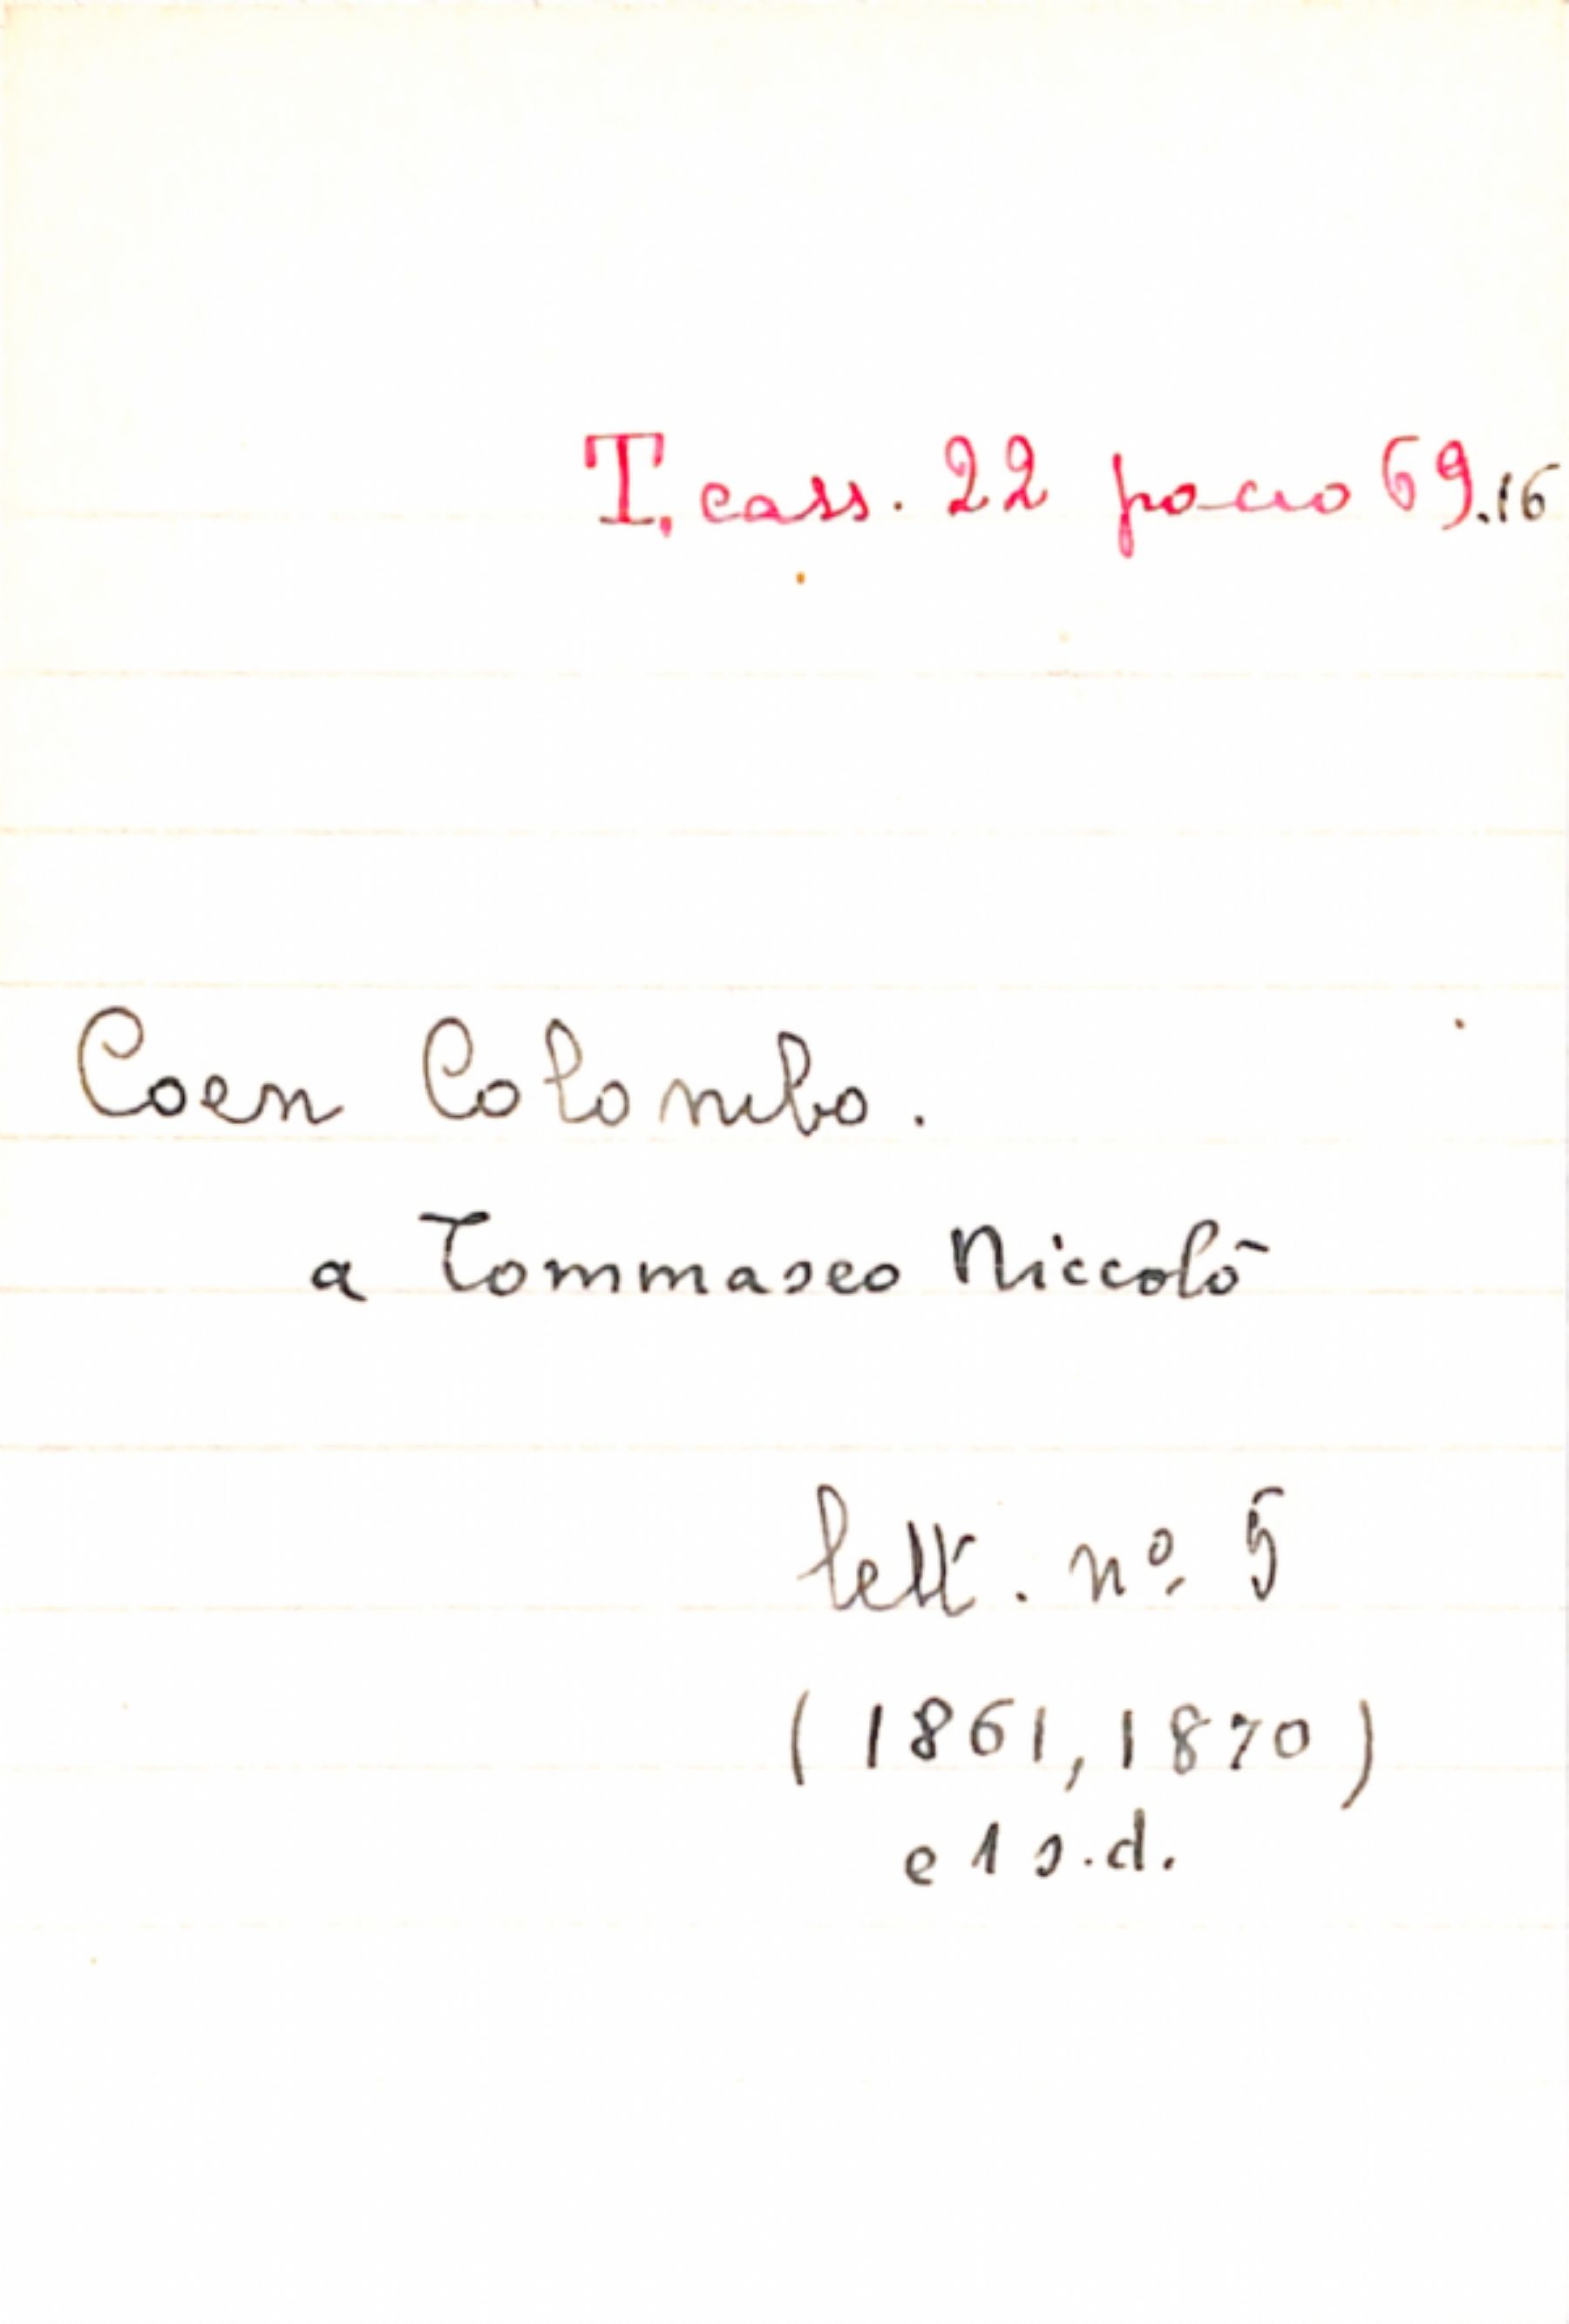 T. cass. 22 pacco 69.16
Coen Colombo.
a Tommaseo Niccolò
lett. nº 5
(1861, 1870)
e 1 s.d.